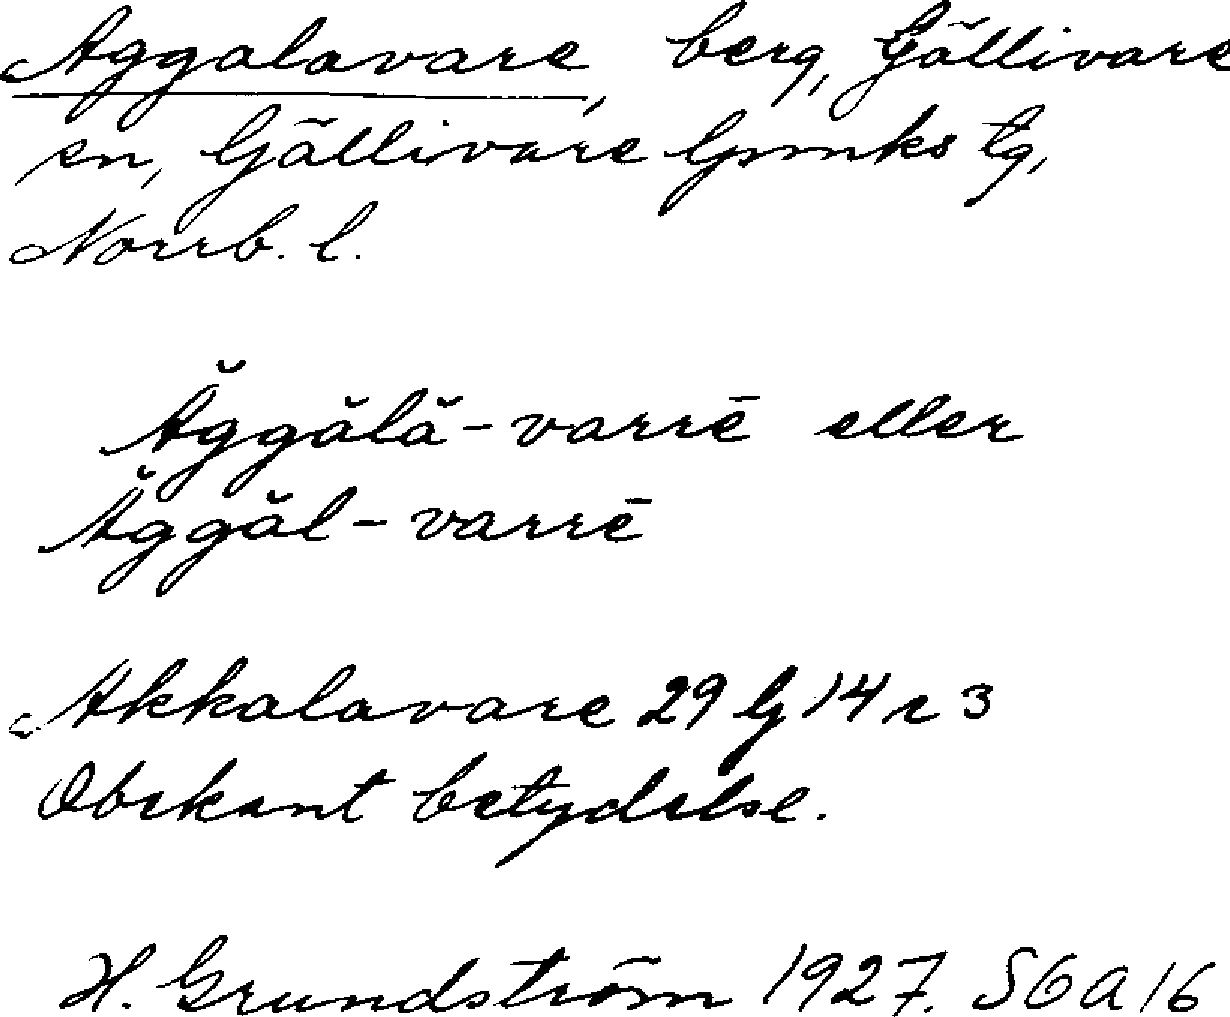 Aggalavare, berg, Gällivare
sn, Gällivare lpmks tg,
Norrb. l.
Ăggălă-varrē eller
Ăggăl-varrē
Akkalavare 29 G 14 r 3
Obekant betydelse.
H. Grundström 1927. S6a16